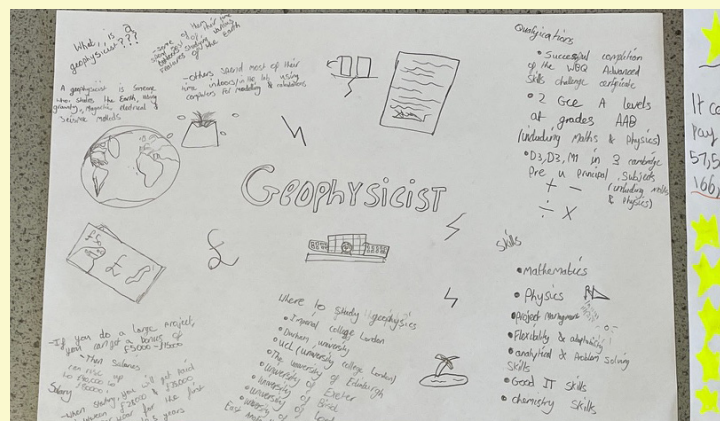 What is a
geophysicist???
A geophysicist is someone
who studies the Earth, using
gravity, magnetic electrical &
seismic methods
- some
of their time
outdoors studying various
features of the Earth
- Others spend most of their
time indoors/in the lab using
computers for modelling & calculations
GEOPHYSICIST
£
£
£
Qualifications
• Successful completion
of the WBQ Advanced
Skills challenge certificate
• 2 Gce A levels
at grades AAB
(including Maths & Physics)
• D3, D3, M1 in 3 cambridge
Pre u Principal Subjects
(including maths
& Physics)
+ -
÷ x
Skills
• Mathematics
• Physics
• Project managment
• Flexibility & adaptability
• analytical & Problem Solving
Skills
• Good IT skills
• chemistry skills
Where to study geophysics
• Imperial college London
• Durham university
• UCL (university college London)
• The University of Edinburgh
• University of Exeter
• University of
• university of
• university of
East
- If you do a large project,
you can get a bonus of
£5000 - £15000
- Then Salaries
can rise up
to
Salary
- When starting, you will get Paid
between £28000 &
year for the first
years
It co
Pay
57,5
166,